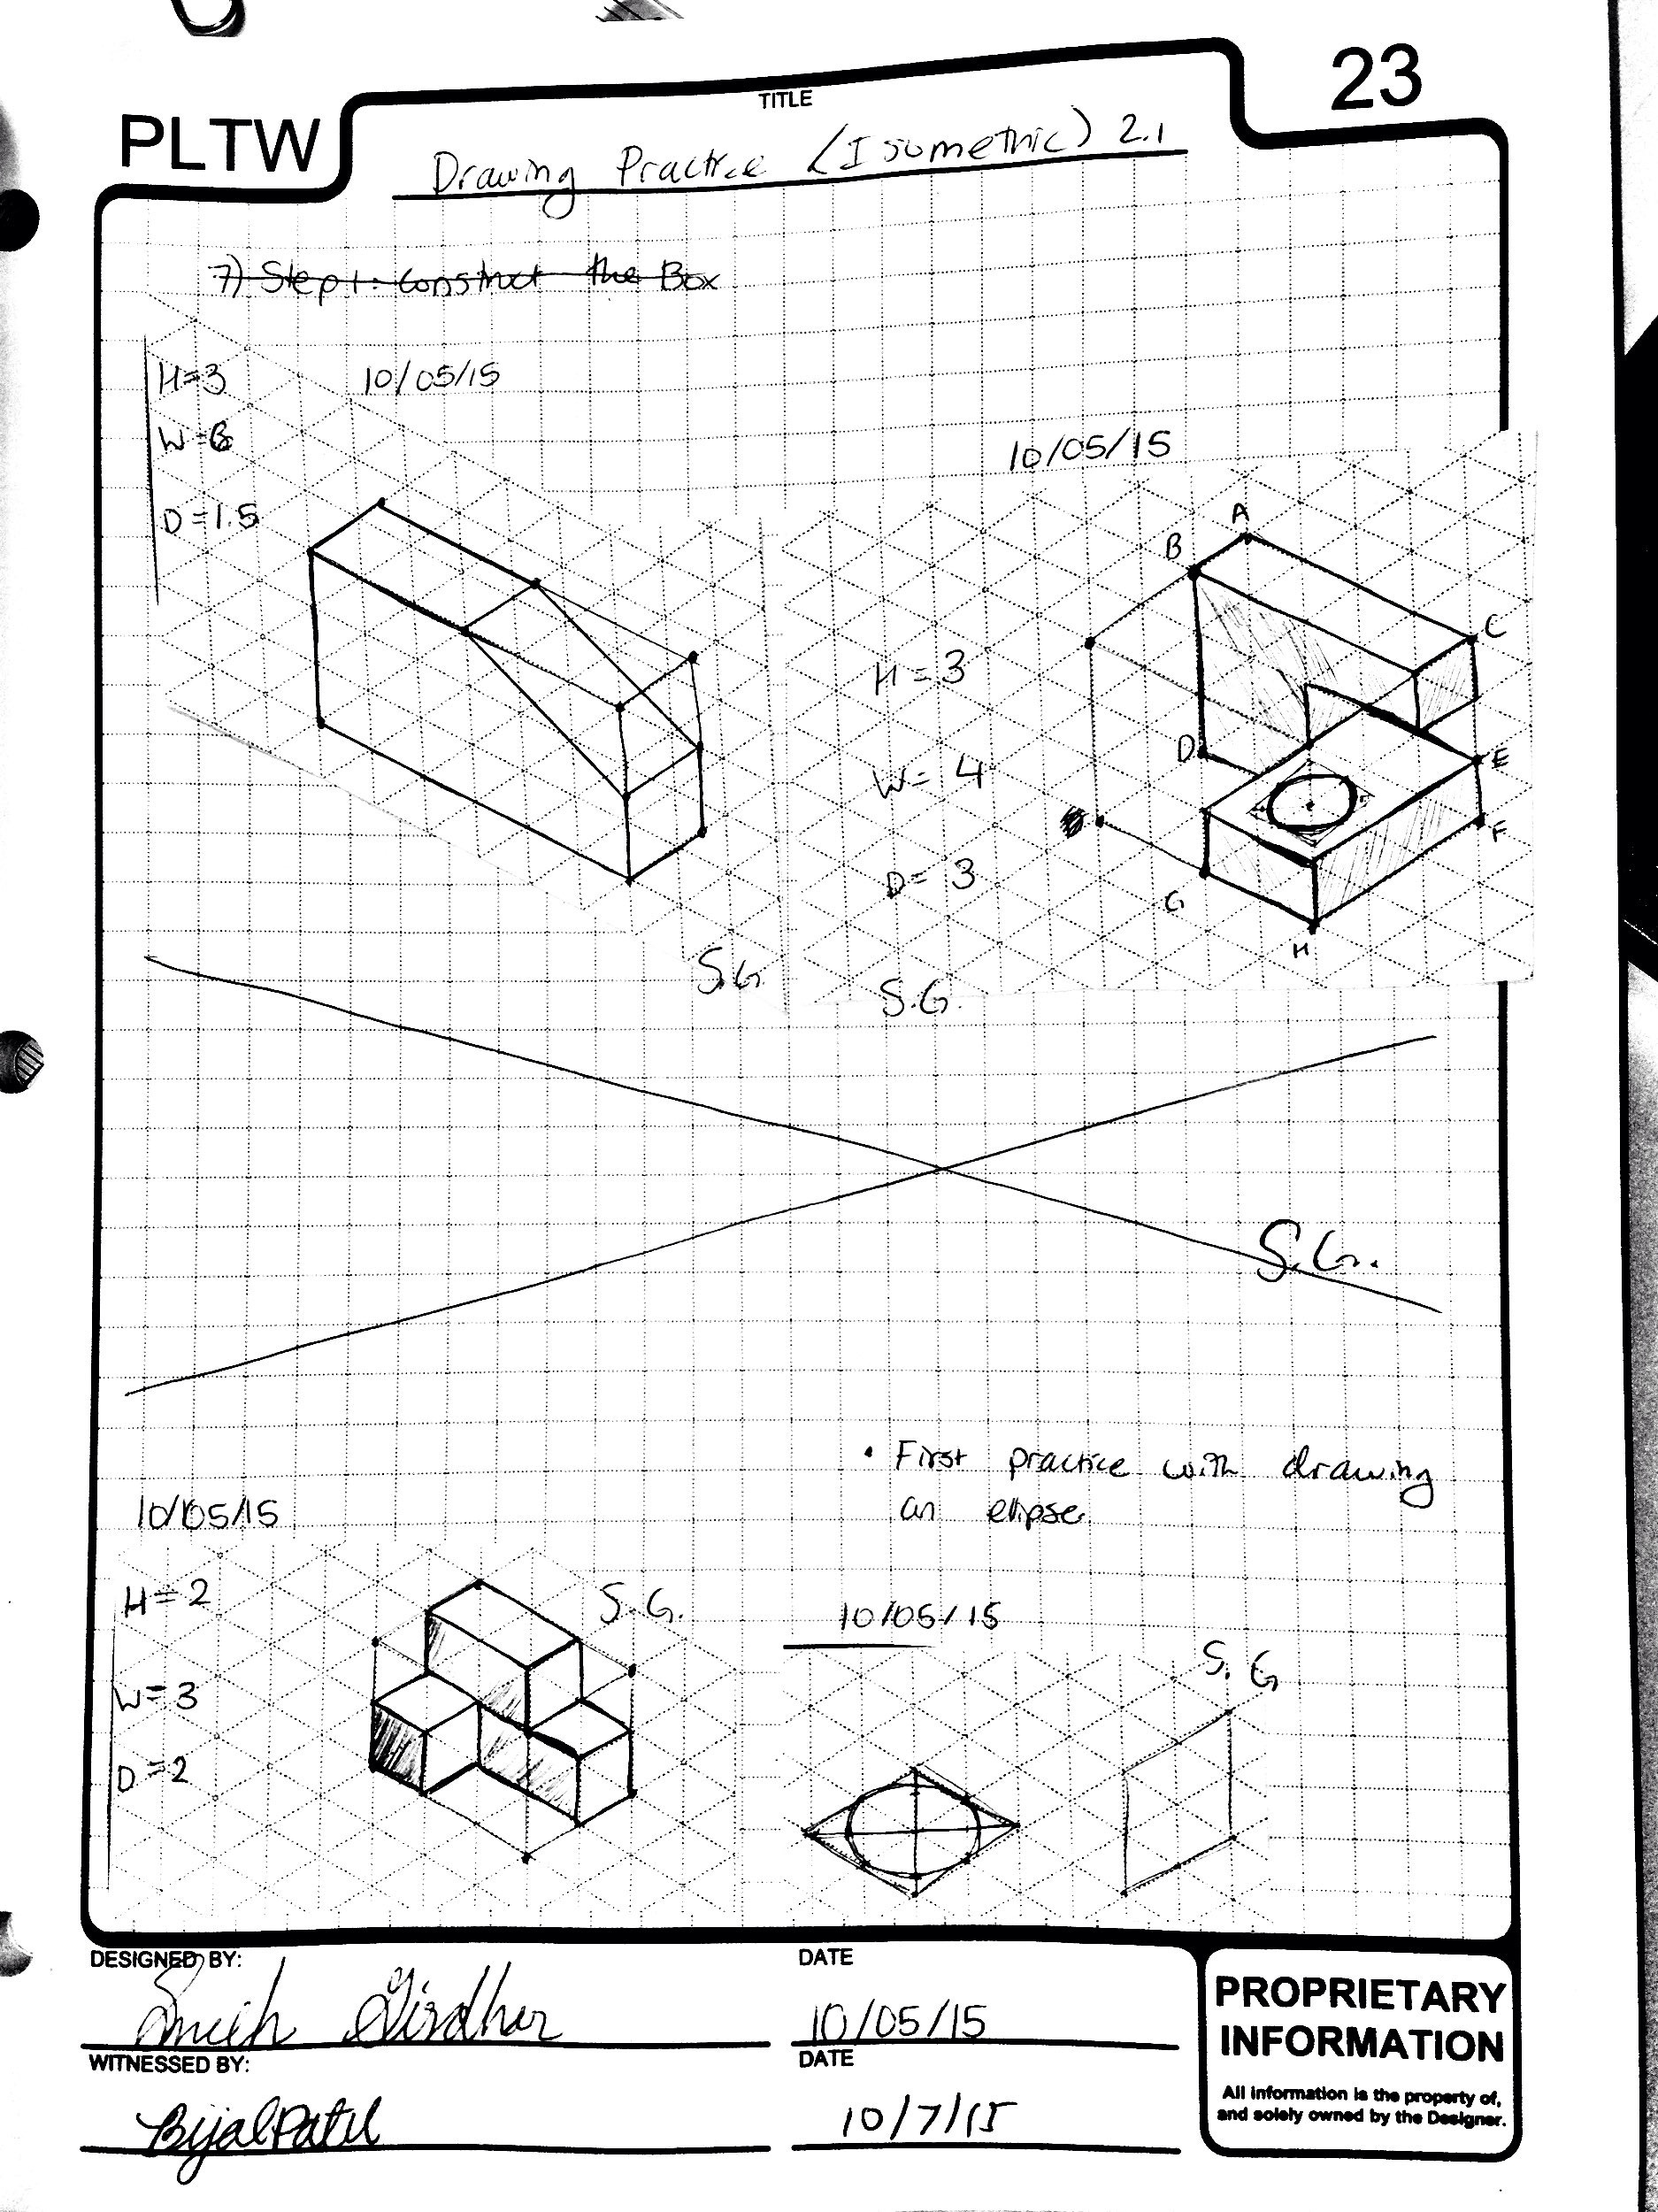 PLTW
TITLE
23
Drawing Practice (Isometric) 2.1
7) Step 1: Construct the Box
H=3
10/05/15
W=6
D=1.5
10/05/15
A
B
C
H=3
D
E
W=4
F
D=3
G
H
S.G.
S.G.
S.G.
• First practice with drawing
an elipse
10/05/15
H=2
S.G.
10/05/15
S.G
W=3
D=2
DESIGNED BY:
Girdhar
DATE
10/05/15
WITNESSED BY:
Bijal Patel
DATE
10/7/15
PROPRIETARY
INFORMATION
All information is the property of,
and solely owned by the Designer.